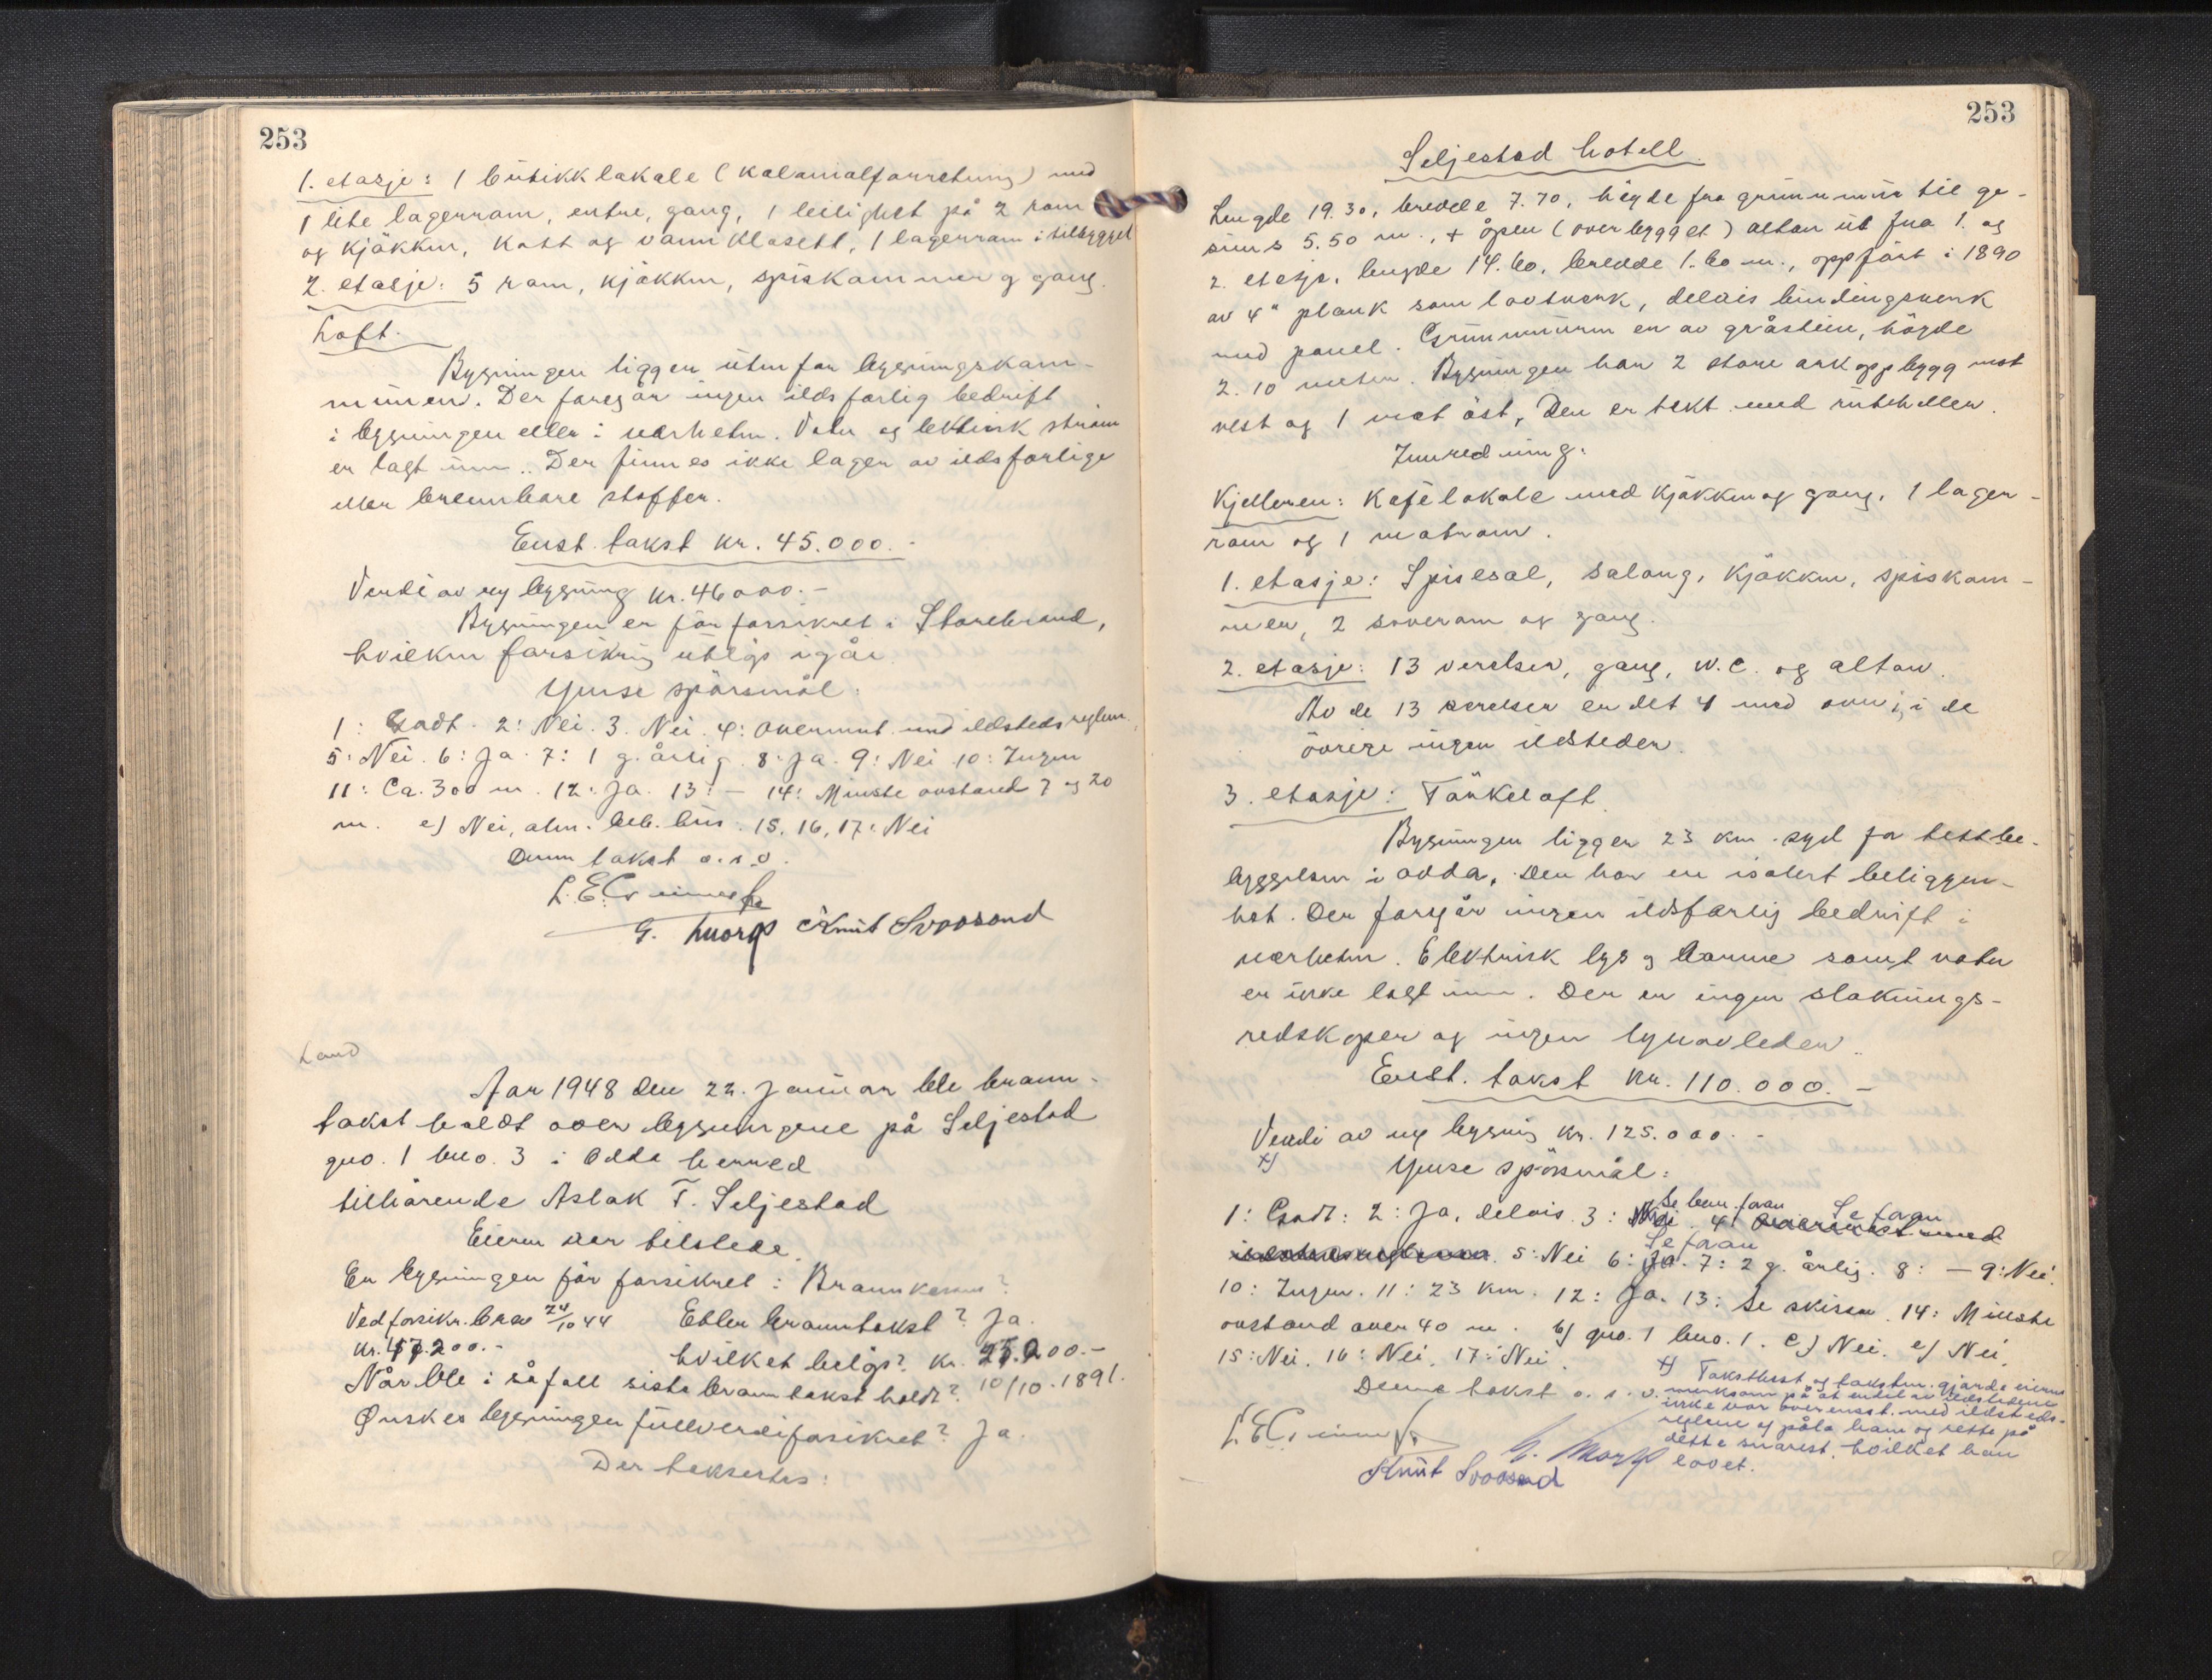 253
1. etasje: 1 butikklokale (kolonialforretning) med
1 lite lagerrom, entre, gang, 1 leilighet på 2 rom
og kjøkken, kott og vannklosett, 1 lagerrom i tilbygget
2. etasje: 5 rom, kjøkken, spiskammer og gang.
Loft.
Bygningen ligger utenfor bygningskom-
munen. Der foregår ingen ildsfarlig bedrift
i bygningen eller i nærheten. Vatn og elektrisk strøm
er lagt inn.. Der finnes ikke lager av ildsfarlige
eller brennbare stoffer.
Enst. takst kr. 45.000.-
Verdi av ny bygning kr. 46000.-
Bygningen er før forsikret i Storebrand,
hvilken forsikring utløp igår.
Ymse spørsmål:
1: Godt. 2: Nei. 3. Nei. 4: Overensst. med ildstedsreglem.
5: Nei. 6: Ja. 7: 1 g. årlig. 8: Ja. 9: Nei. 10: Ingen
11: Ca. 300 m. 12: Ja. 13: - 14: Minste avstand 7 og 20
m. e) Nei, alm. beb. hus. 15, 16, 17: Nei
Denne takst o.s.v.
G. Mork Knut Svoosand
Land
Aar 1948 den 22. januar ble brann-
takst holdt over bygningene på Seljestad
gno. 1 bno. 3 i Odda herred
tilhørende Aslak T. Seljestad
Eieren var tilstede.
Er bygningen før forsikret: Brannkassen?
Ved forsikr.brev 24/10 44 Etter branntakst? Ja.
kr. 47.200.- hvilket beløp? kr. 25.200.-
Når ble i så fall siste branntakst holdt? 10/10. 1891.
Ønskes bygningen fullverdiforsikret? Ja.
Der taksertes:
253
Seljestad hotell
Lengde 19.30, bredde 7.70, høyde fra grunnmur til ge-
sims 5.50 m., + åpen (overbygget) altan ut fra 1. og
2. etasje, lengde 14.60, bredde 1.60 m., oppført i 1890
av 4" plank som lovtverk, delvis bindingsverk
med panel. Grunnmuren er av gråstein, høyde
2.10 meter. Bygningen har 2 store arkoppbygg mot
vest og 1 mot øst. Den er tekt med ruteheller.
Innredning:
Kjelleren: Kafelokale med kjøkken og gang. 1 lager-
rom og 1 matrom.
1. etasje: Spisesal, salong, kjøkken, spiskam-
mer, 2 soverom og gang.
2. etasje: 13 værelser, gang, W.C. og altan.
Av de 13 værelser er det 4 med ovn, i de
øvrige ingen ildsteder.
3. etasje: Tørkeloft
Bygningen ligger 23 km. syd for tettbe-
byggelsen i Odda. Den har en isolert beliggen-
het. Der foregår ingen ildsfarlig bedrift i
nærheten. Elektrisk lys og varme samt vatn
er ikke lagt inn. Der er ingen sloknings-
redskaper og ingen lynavleder.
Enst. takst kr. 110.000.-
Verdi av ny bygning kr. 125.000.-
+) Ymse spørsmål:
1: Godt: 2: Ja, delvis. 3: Se bem. foran 4: Se foran
5: Nei 6: Se foran 7: 2 g. årlig. 8: - 9: Nei.
10: Ingen. 11: 23 km. 12: Ja. 13: Se skisse. 14: Minste
avstand over 40 m. b) gno. 1 bno. 1. c) Nei. e) Nei.
15: Nei. 16: Nei. 17: Nei.
Denne takst o.s.v.
+) Takstbest. og takstm. gjorde eieren
merksam på at endel av ildstedene
ikke var overensst. med ildsteds-
reglem. og påla ham og rette på
dette snarest, hvilket han
lovet.
G. Mork
Knut Svoosand